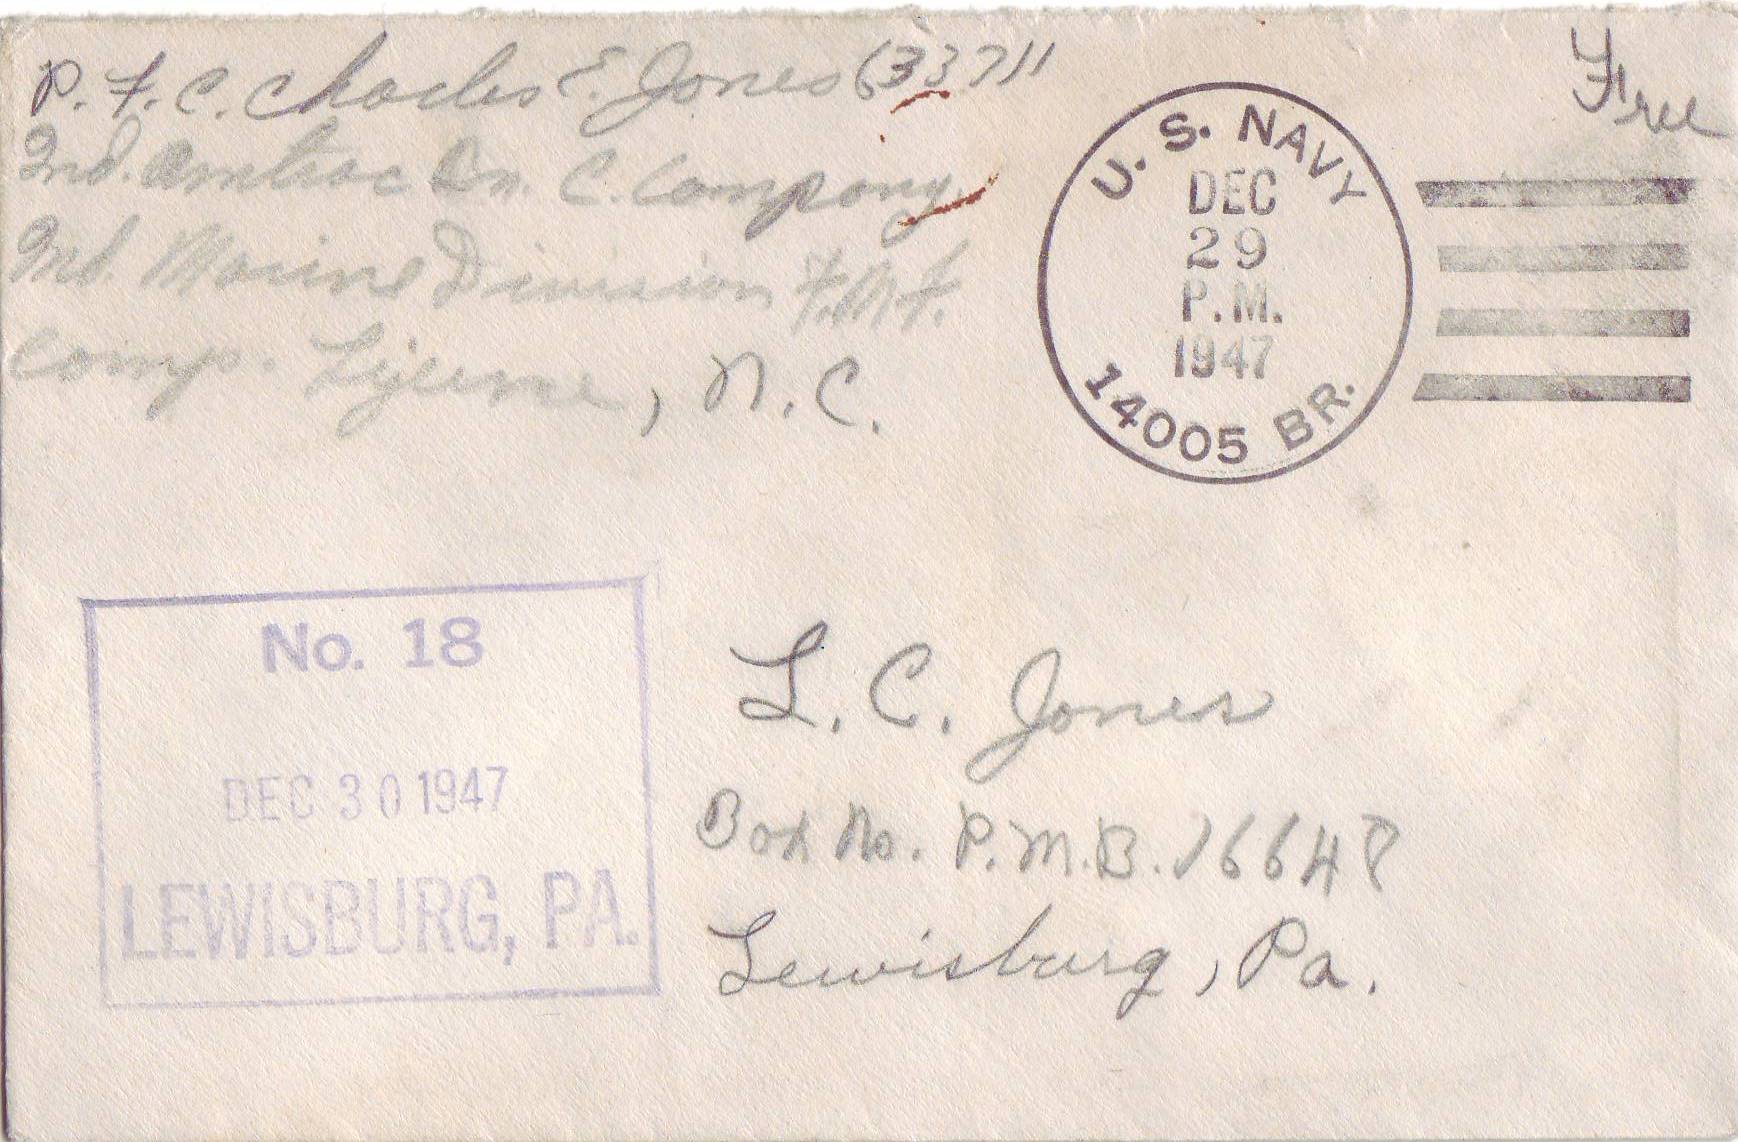 P. F. C. Charles E. Jones 633711
2nd. Amtrac Bn. C. Company
2nd. Marine Division F.M.F.
Comp. Lejeune, N. C.
Free
U. S. NAVY
DEC
29
P.M.
1947
14005 BR.
No. 18
DEC 30 1947
LEWISBURG, PA.
L. C. Jones
Box No. P.M.B. 16648
Lewisburg, Pa.